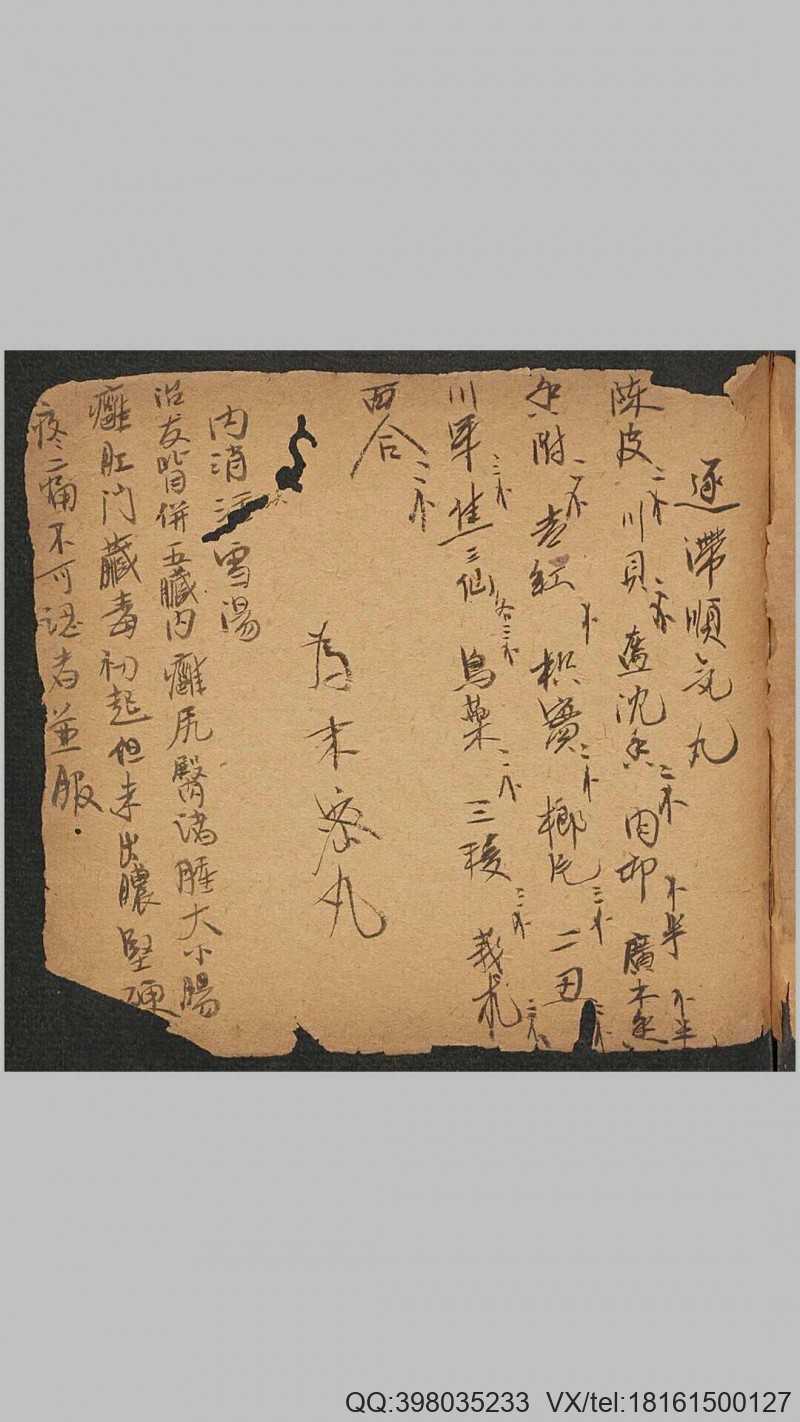 逐滞順気丸
陈皮二个川貝二个盔沈香二个肉卬个半廣木香个半
香附二个 紅个枳實二个榔片三个二丑三个
川军三个焦三仙各三个烏藥二个三稜三个莪朮三个
西合二个
為末蜜丸
内消 雪湯
治发背併五臟内癰尻臀諸腫大小腸
癰肛门臟毒初起但未出膿堅硬
疼痛不可 者並服
QQ:398035233 VX/tel:18161500127